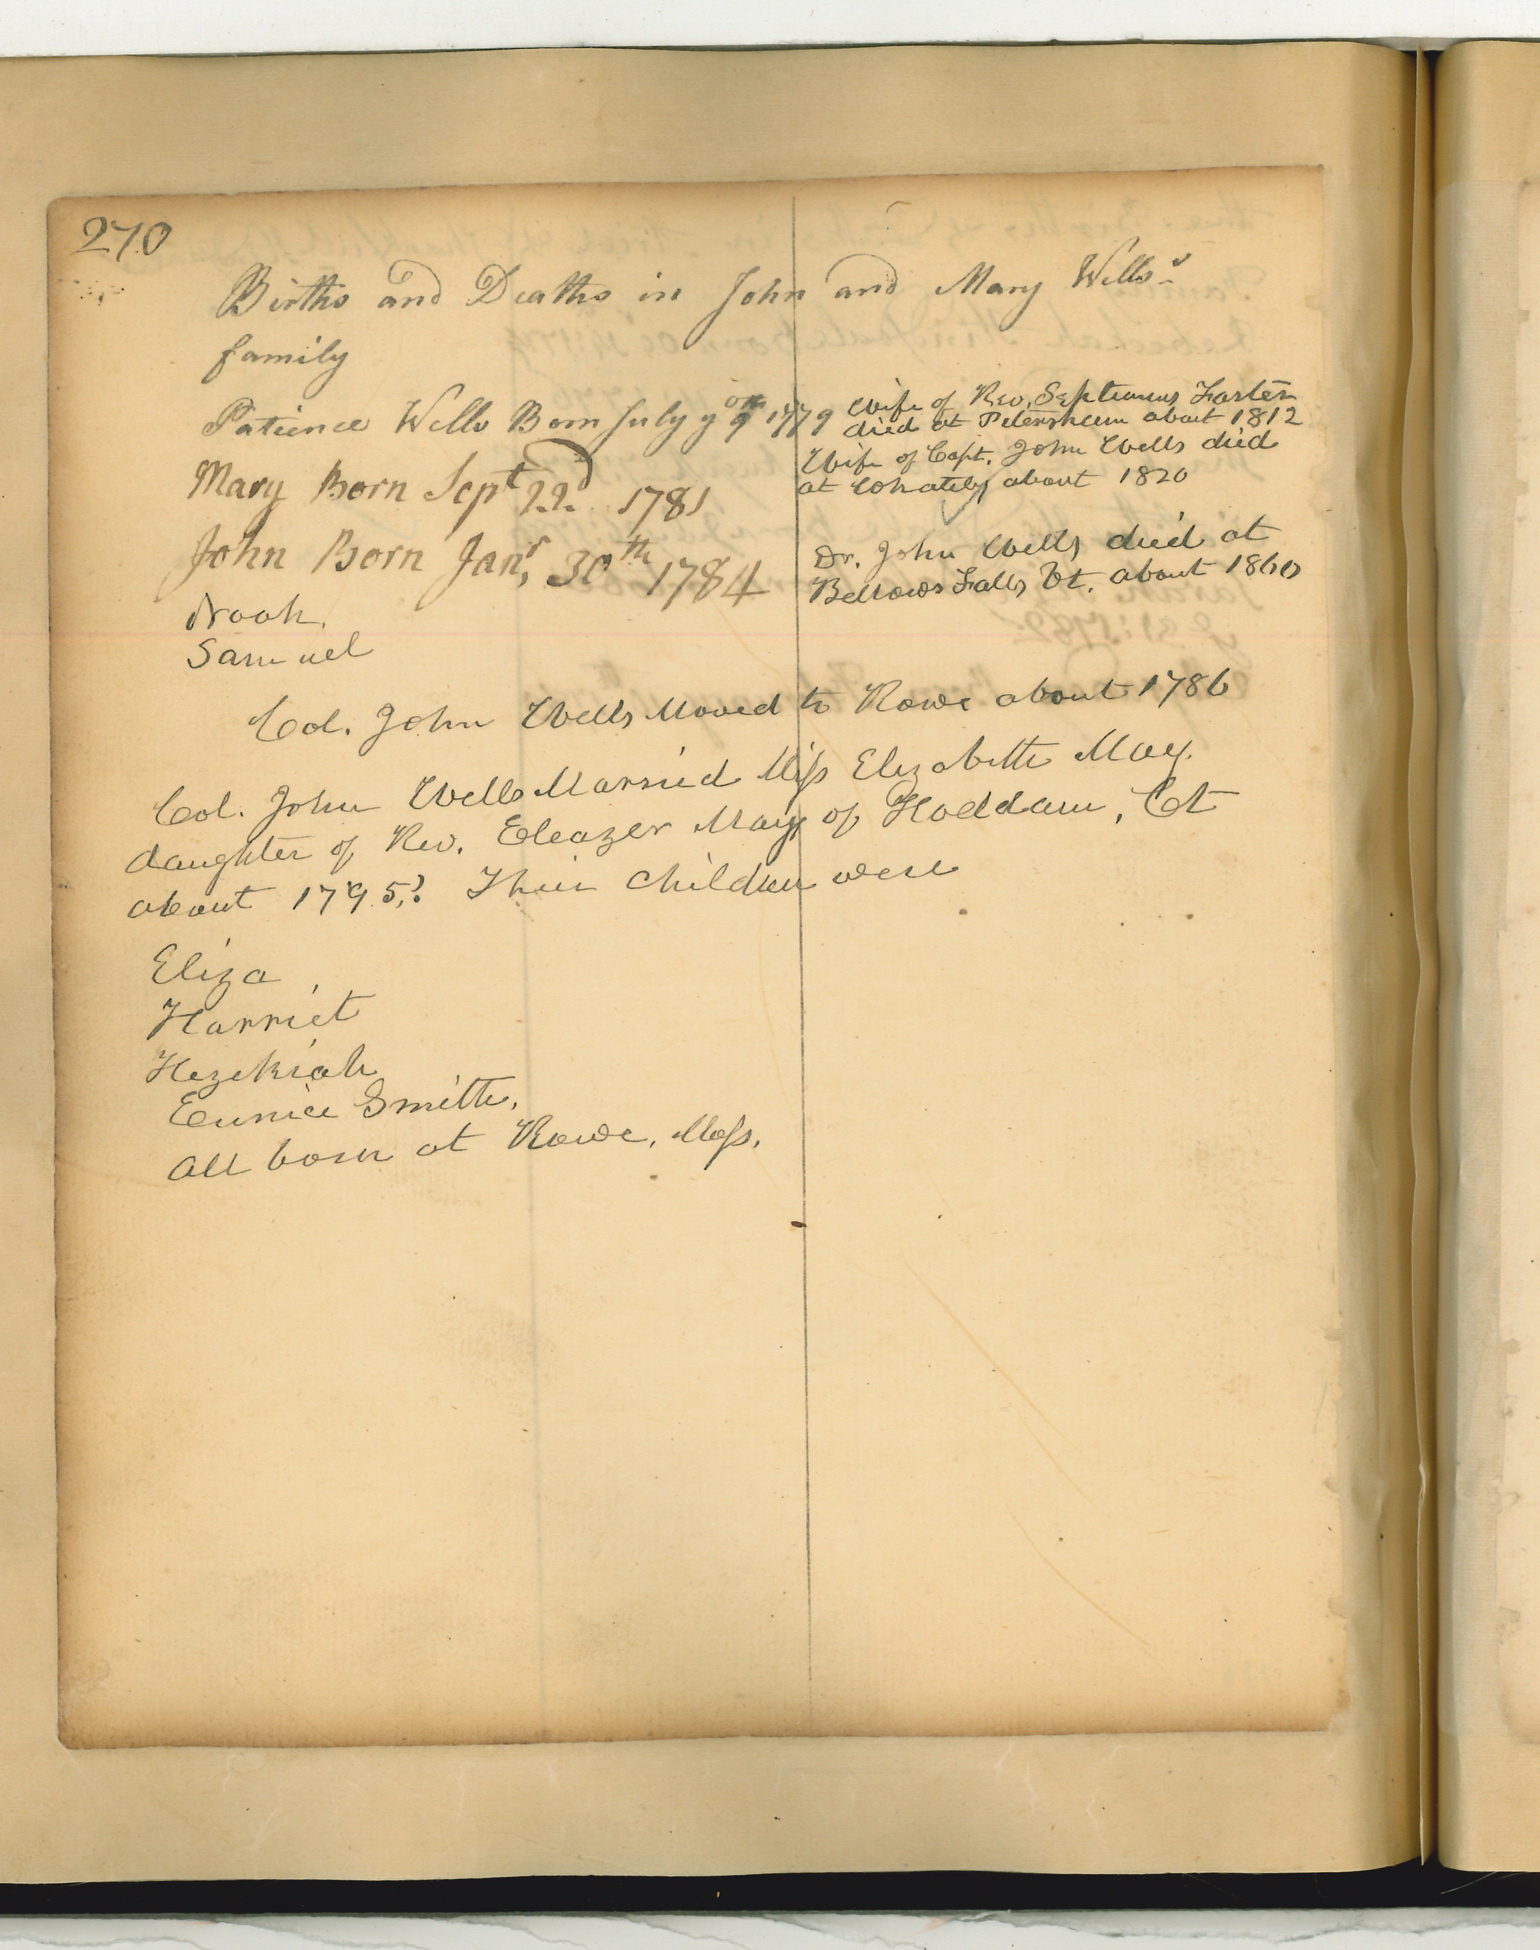 270
Births and Deaths in John and Mary Wells's
family
Patience Wells Born July y 9 1779
Wife of Rev. Septimus Foster
died at Petersham about 1812
Mary Born Sept 22d 1781
Wife of Capt. John Wells died
at Whately about 1820
John Born Janr, 30th 1784
Dr. John Wells died at
Bellows Falls Vt. about 1860
Noah.
Samuel
Col. John Wells Moved to Rowe about 1786
Col. John Wells Married Miss Elizabeth May.
daughter of Rev. Eleazer May of Haddam, Ct
about 1795? Their children were
Eliza
Harriet
Hezekiah
Eunice Smith.
All born at Rowe, Mass.